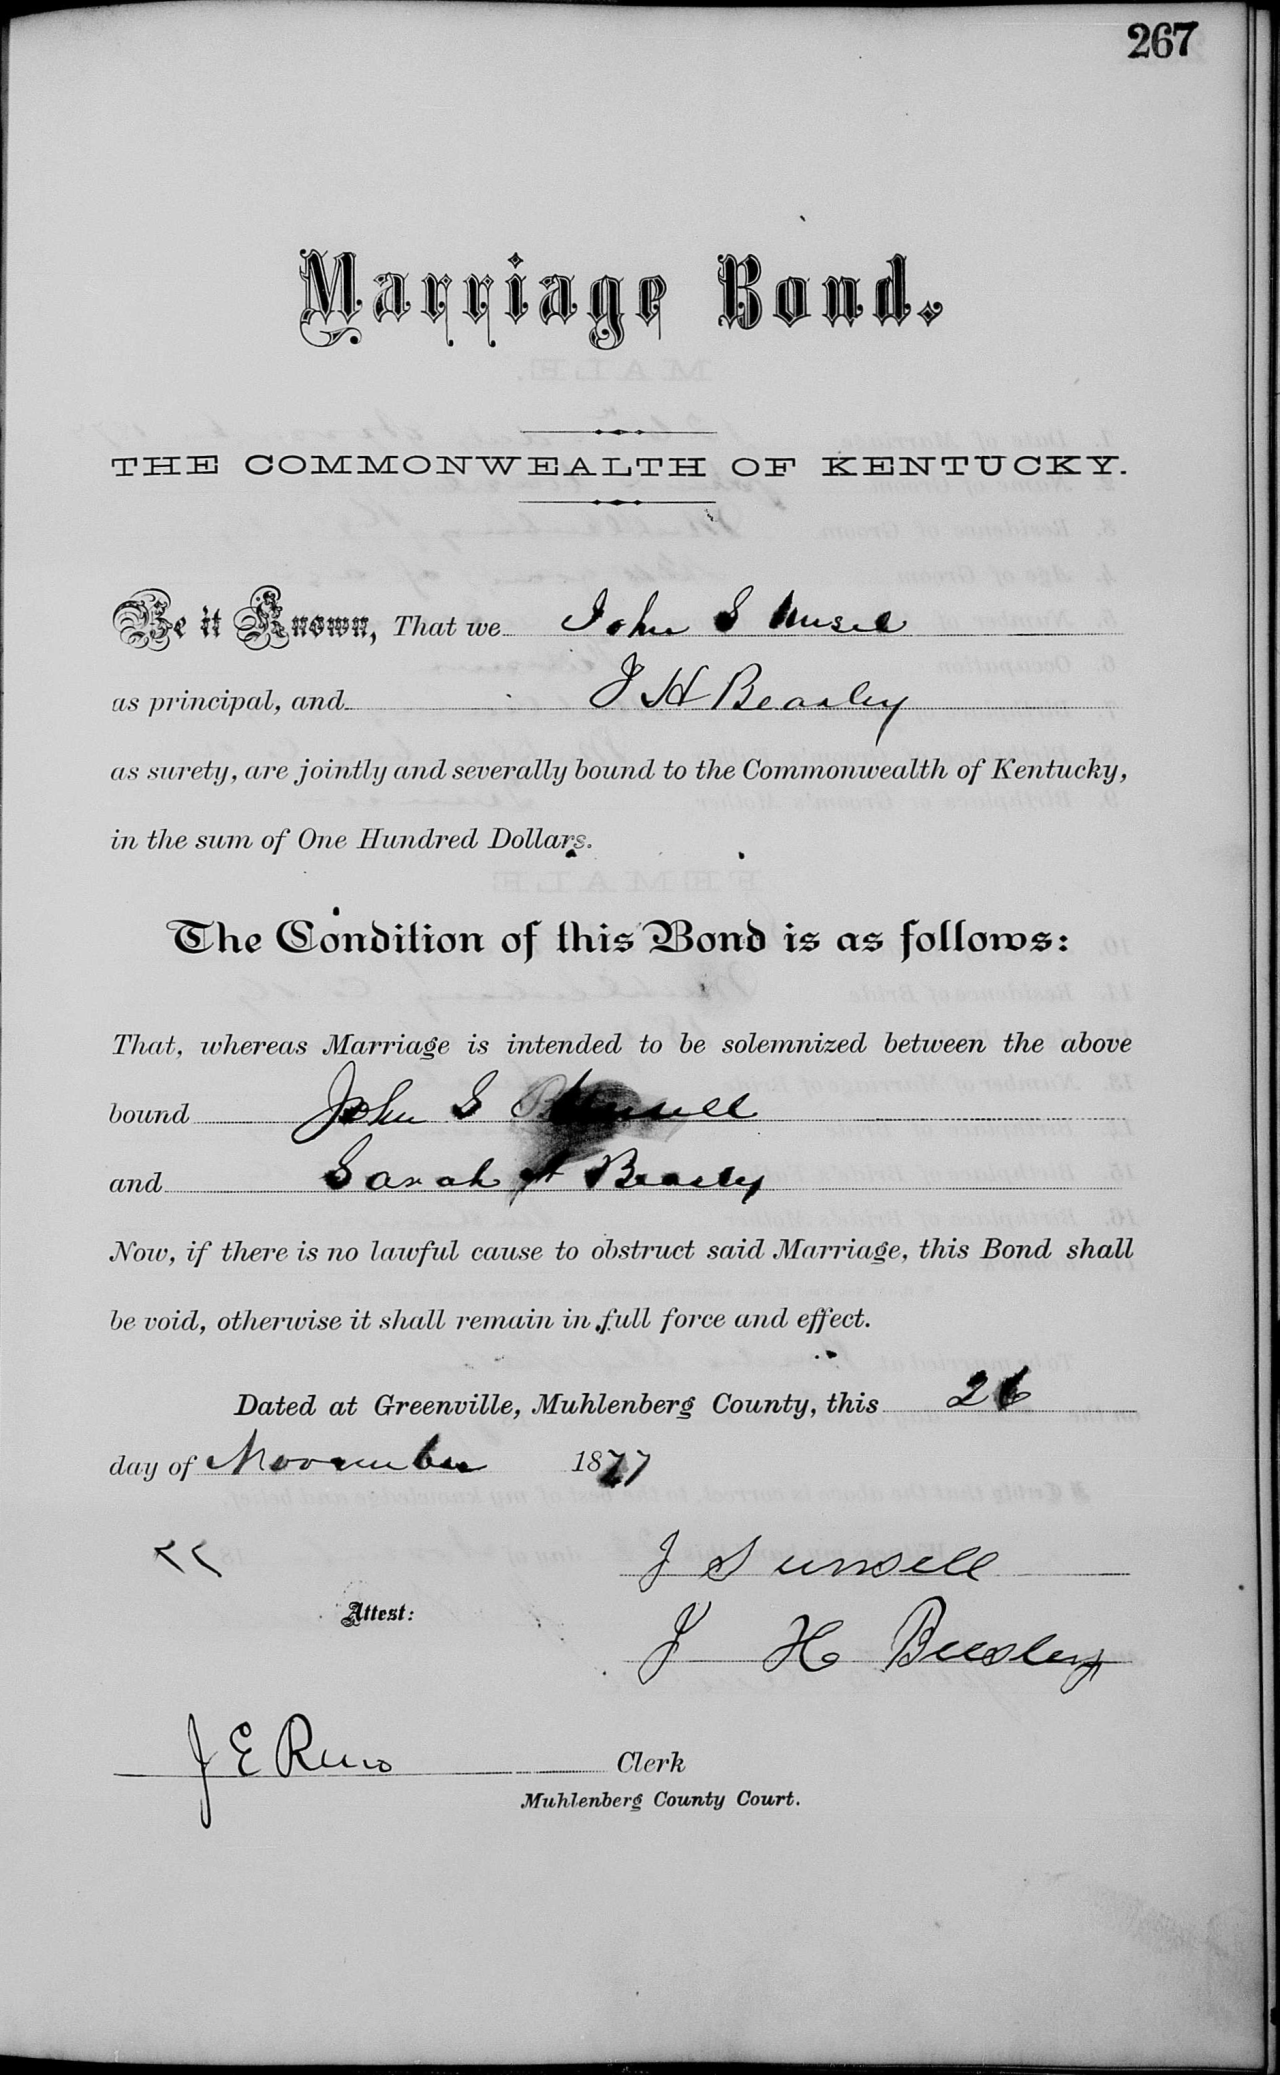 267
Marriage Bond.
THE COMMONWEALTH OF KENTUCKY.
Be it Known, That we John S
as principal, and J H Beasley
as surety, are jointly and severally bound to the Commonwealth of Kentucky,
in the sum of One Hundred Dollars.
The Condition of this Bond is as follows:
That, whereas Marriage is intended to be solemnized between the above
bound John S
and Sarah Beasley
Now, if there is no lawful cause to obstruct said Marriage, this Bond shall
be void, otherwise it shall remain in full force and effect.
Dated at Greenville, Muhlenberg County, this 26
day of November 1877
J S Unsell
Attest:
J H Beesley
J E Reno Clerk
Muhlenberg County Court.